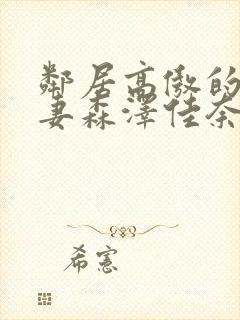 鄰居高傲的
妻森澤佳奈
希憲